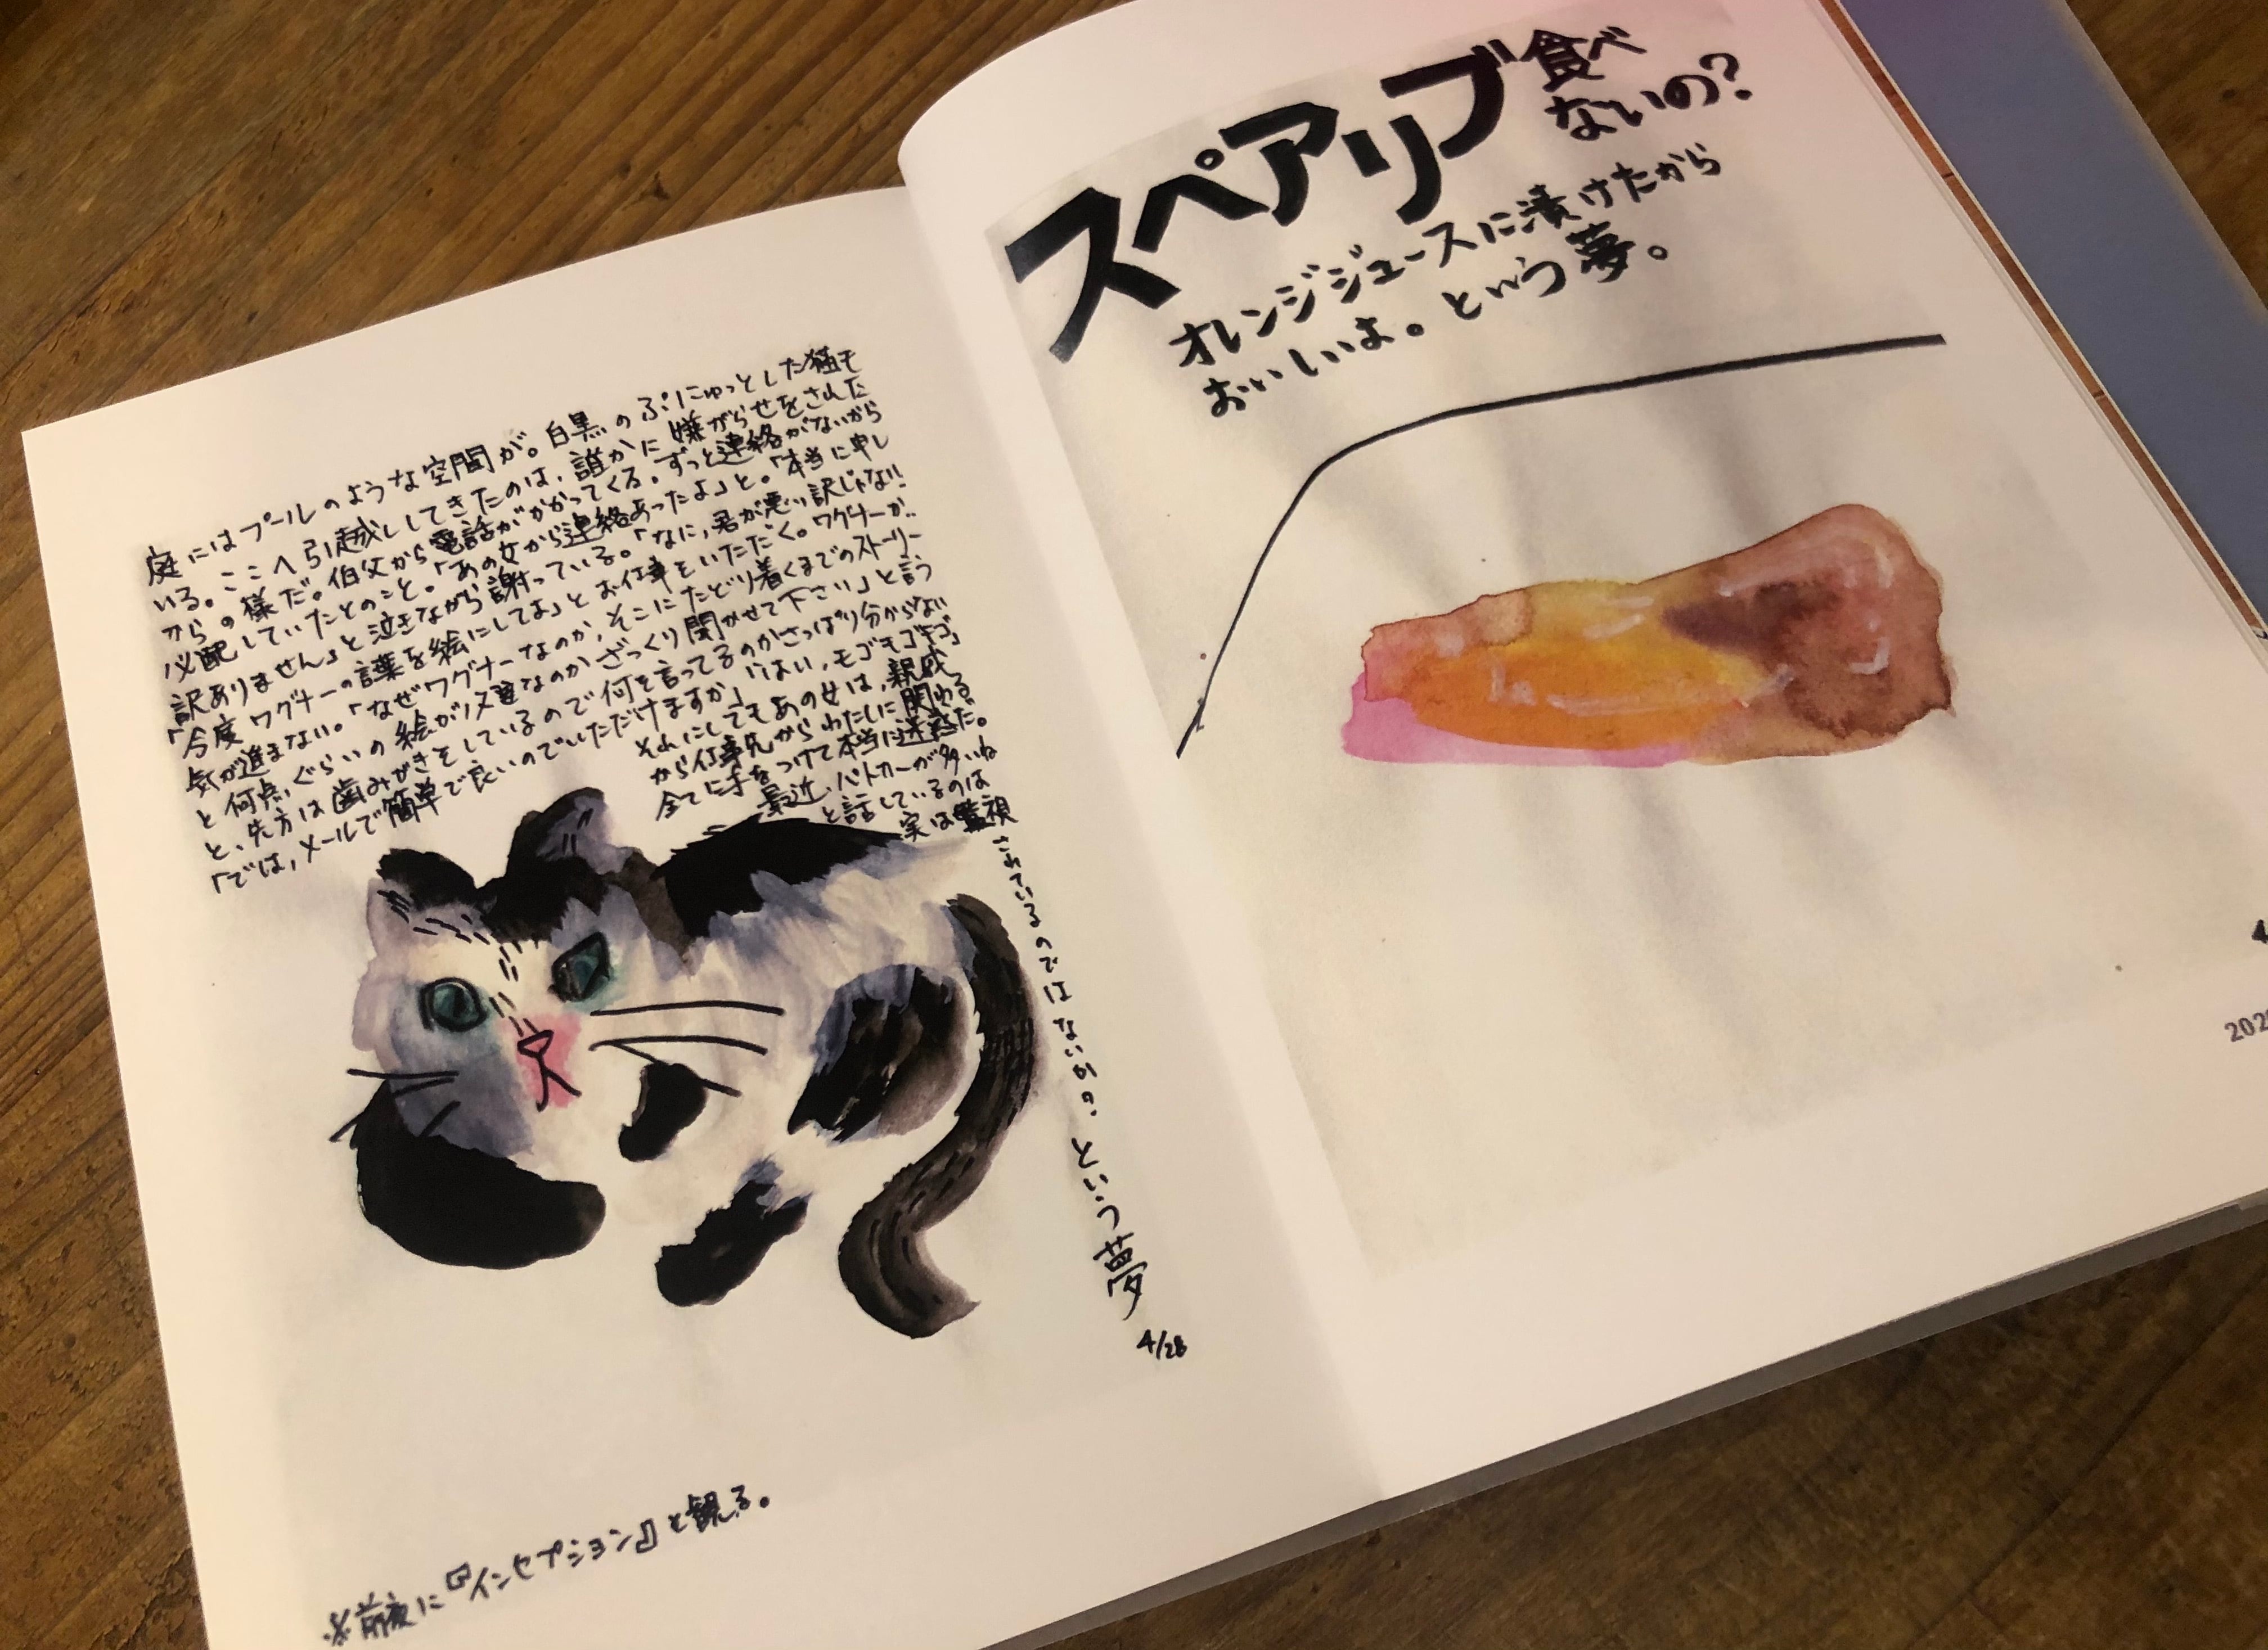 庭にはプールのような空間が。白黒のぷにゅっとした猫も
いる。ここへ引越ししてきたのは、誰かに嫌がらせをされた
からの様だ。伯父から電話がかかってくる。ずっと連絡がないから
心配していたとのこと。「あの女から連絡あったよ」と。「本当に申し
訳ありません」と泣きながら謝っている。「なに、君が悪い訳じゃない!
「今度ワグナーの言葉を絵にしてよ」とお仕事をいただく。ワグナーか..
気が進まない。「なぜワグナーなのか、そこにたどり着くまでのストーリー
と何点ぐらいの絵が必要なのかざっくり聞かせて下さい」と言う
と、先方は歯みがきをしているので何を言ってるのかさっぱり分からない
「では、メールで簡単で良いのでいただけますか」「はい、モゴモゴモゴ」
それにしてもあの女は、親戚
から仕事先からわたしに関わる
全てに手をつけて本当に迷惑だ。
最近、パトカーが多いね
と話しているのは
実は監視
されているのではないかの、という夢
4/28
※前夜に『インセプション』と観る。
スペアリブ食べ
ないの?
オレンジジュースに漬けたから
おいしいよ。という夢。
4
202